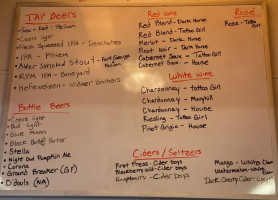 TAP Beers
Coors light
Fresh Squeezed IPA - Deschutes
IPA - Pfriem
Alder Smoked Stout - Fort George
RPM IPA - Boneyard
Hefeweizen - Widmer Brothers
Bottle Beers
Coors light
Bud light
Blue Moon
Black Butte Porter
Stella
Night Owl Pumpkin Ale
Corona
Ground Breaker (GF)
O'douls (NA)
Red Wine
Red Blend - Dark Horse
Red Blend - Tattoo Girl
Merlot - Dark Horse
Pinot Noir - Dark Horse
Cabernet Sauv - Tattoo Girl
Cabernet Sauv - House
White Wine
Chardonnay - Tattoo Girl
Chardonnay - Maryhill
Chardonnay - House
Riesling - Tattoo Girl
Pinot Grigio - House
Rosé
Rose - Tattoo Girl
Ciders / Seltzers
First Press - Cider boys
Blackberry Wild - Cider boys
Raspberry - Cider boys
Mango - White Claw
Dark Cherry Cider